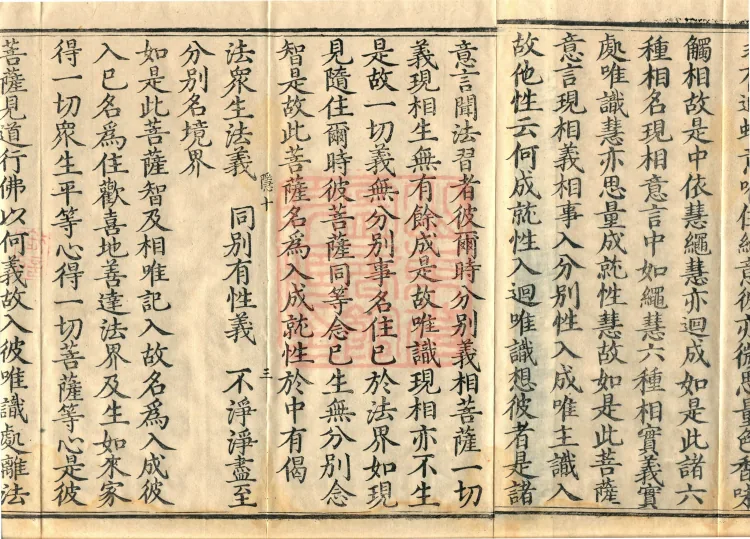 觸相故是中依慧繩慧亦迴成如是此諸六
種相名現相意言中如繩慧六種相實義實
處唯識慧亦思量成就性慧故如是此菩薩
意言現相義相事入分別性入成唯主識入
故他性云何成就性入迴唯識想彼者是諸
意言聞法習者彼爾時分別義相菩薩一切
義現相生無有餘成是故唯識現相亦不生
是故一切義無分別事名住已於法界如現
見隨住爾時彼菩薩同等念已生無分別念
智是故此菩薩名為入成就性於中有偈
法眾生法義 同別有性義 不淨淨盡至
隱十 三
分別名境界
如是此菩薩智及相唯記入故名為入成彼
入已名為住歡喜地善達法界及生如來家
得一切眾生平等心得一切菩薩等心是彼
菩薩見道行佛以何義故入彼唯識處離法